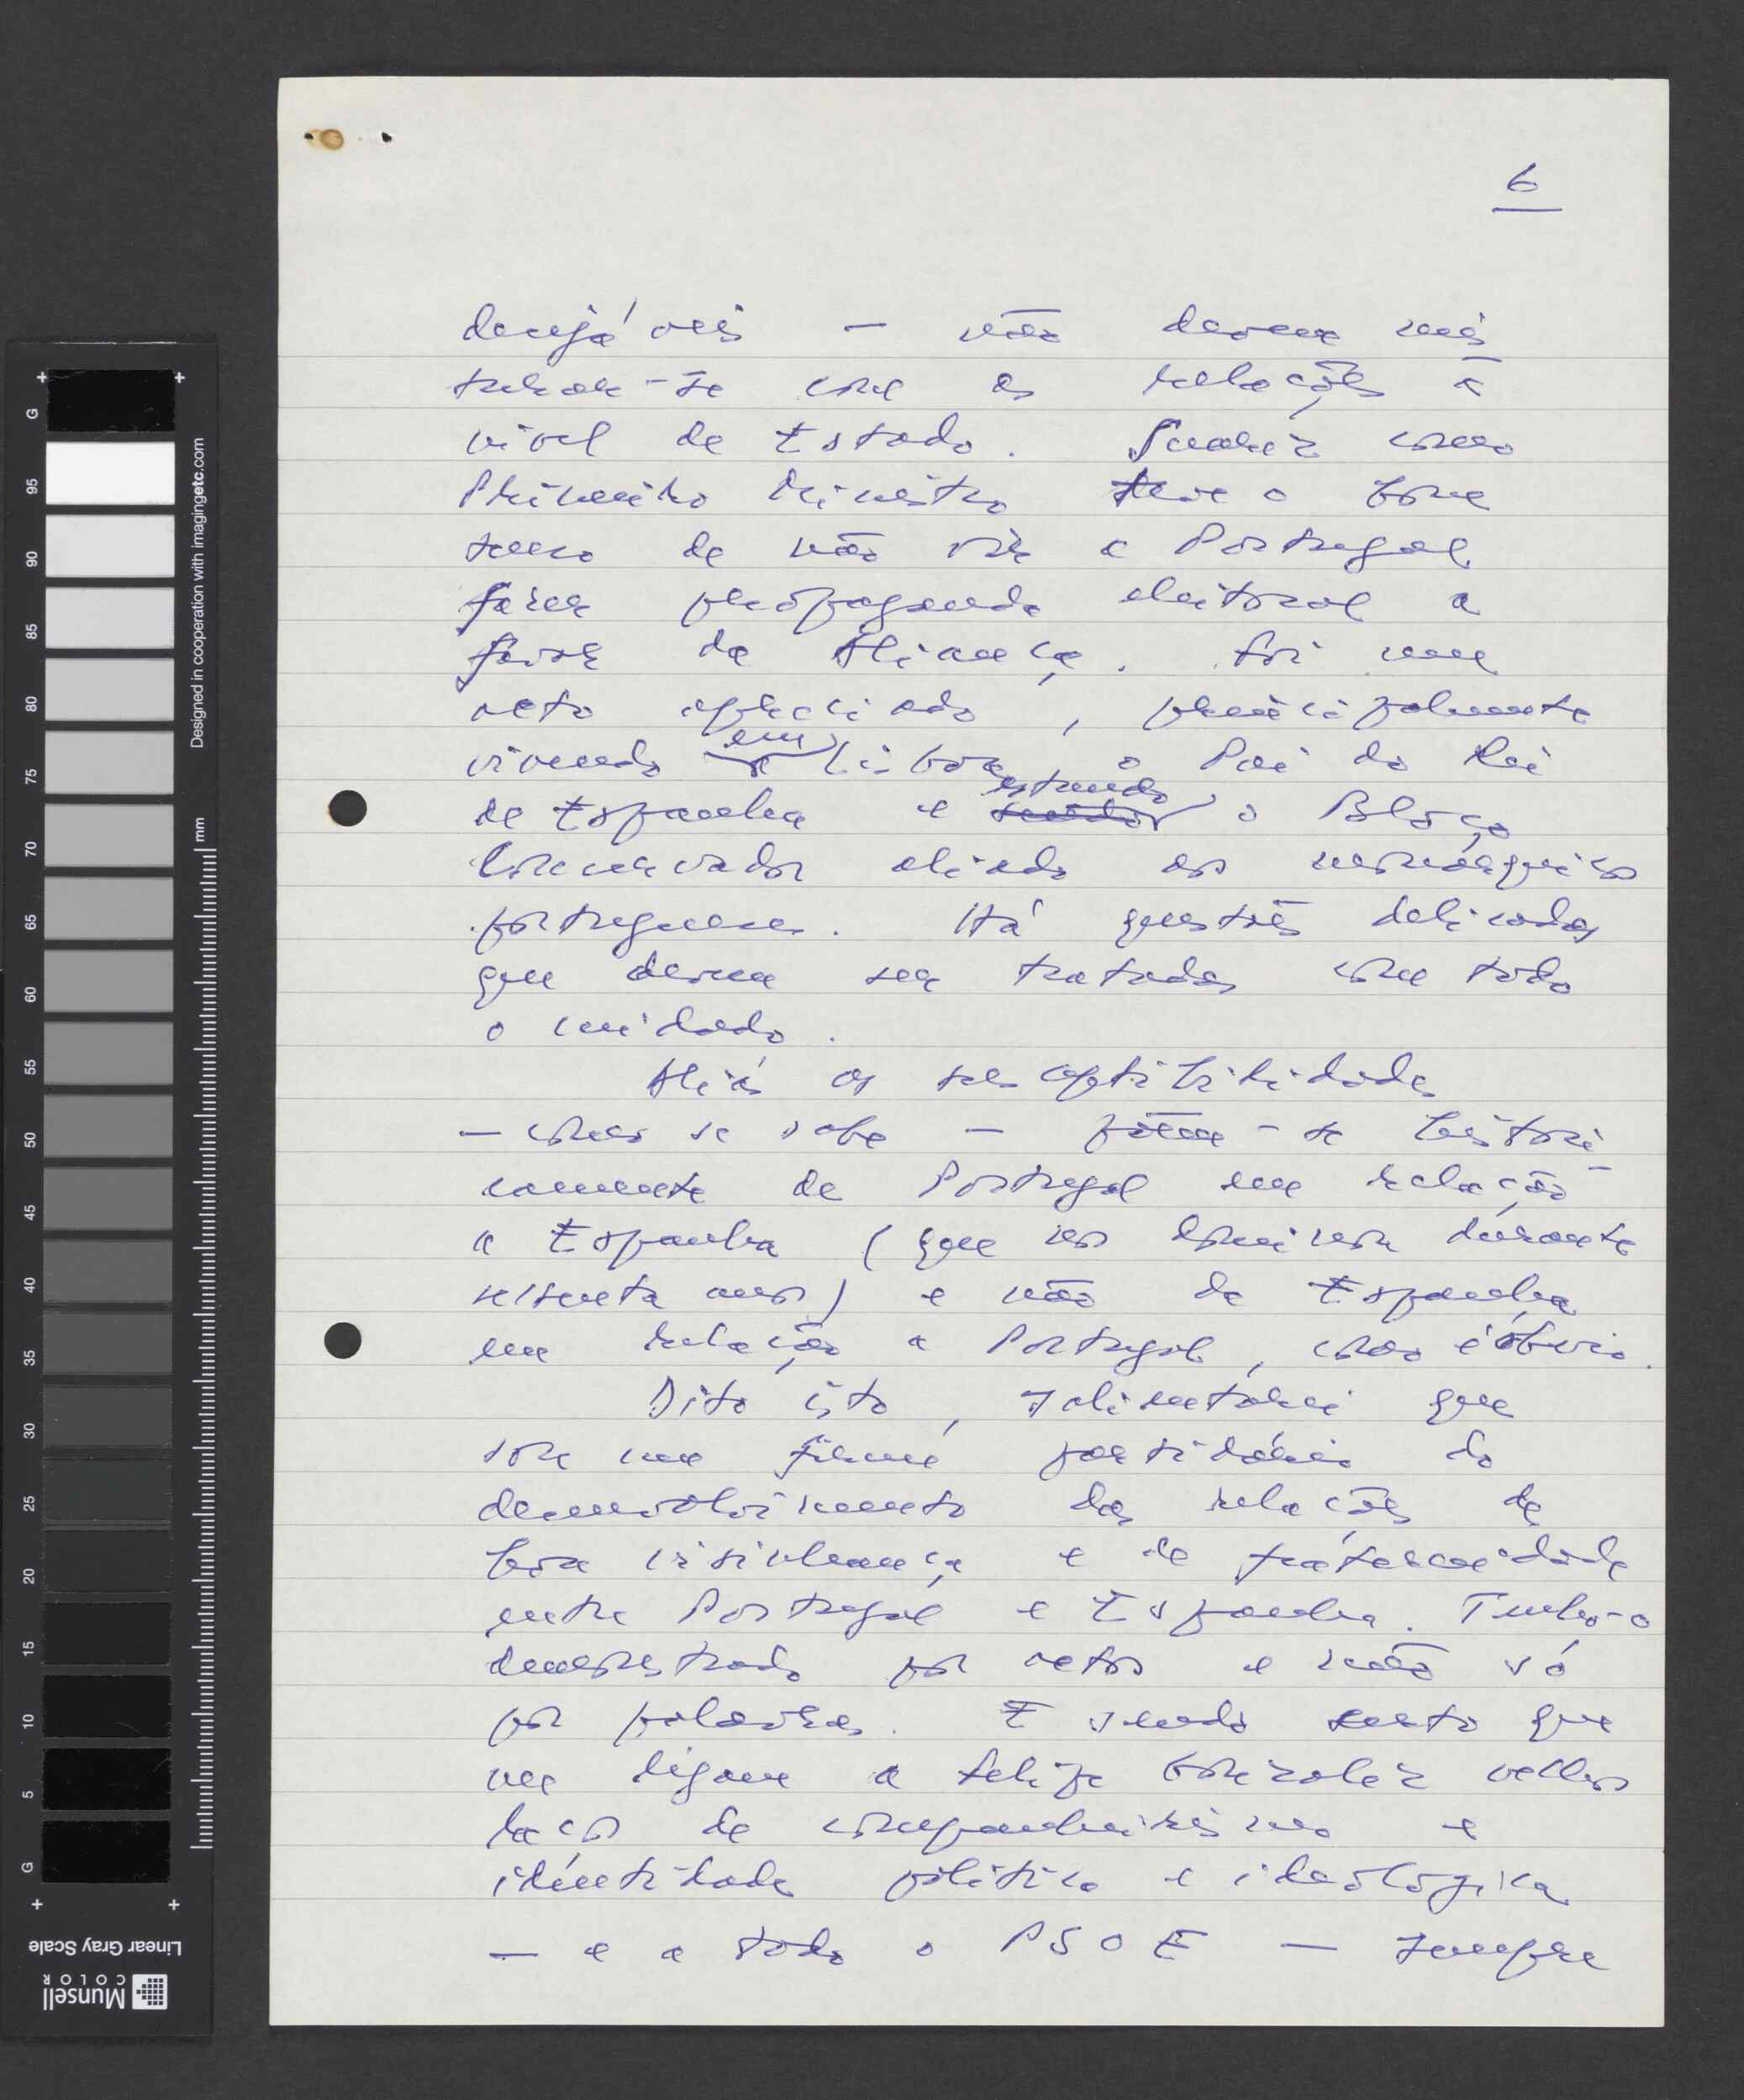 6
desejáveis — não devem mis
turar-se com as relações a
nível de Estado. Suarez como
Primeiro Ministro teve o bom
senso de não vir a Portugal
fazer propaganda eleitoral a
favor da Aliança. Foi um
acto apreciado, principalmente
vivendo em Lisboa, o Pai do Rei
de Espanha e estando o Bloco
Conservador aliado aos monárquicos
portugueses. Há questões delicadas
que devem ser tratadas com todo
o cuidado.
Aliás as susceptibilidades
— como se sabe — põem-se histori-
camente de Portugal em relação
a Espanha (que nos dominou durante
sessenta anos) e não de Espanha
em relação a Portugal, como é óbvio.
Dito isto, salientarei que
sou um firme partidário do
desenvolvimento das relações de
boa vizinhança e de fraternidade
entre Portugal e Espanha. Tenho-o
demonstrado por actos e não só
por palavras. E sendo certo que
me ligam a Felipe Gonzalez velhos
laços de companheirismo e
identidade política e ideológica
— e a todo o PSOE — sempre
Designed in cooperation with imagingetc.com
mm
G 95 90 85 80 75 70 65 60 55 50 45 40 35 30 25 20 15 10 5 G
Munsell COLOR
Linear Gray Scale